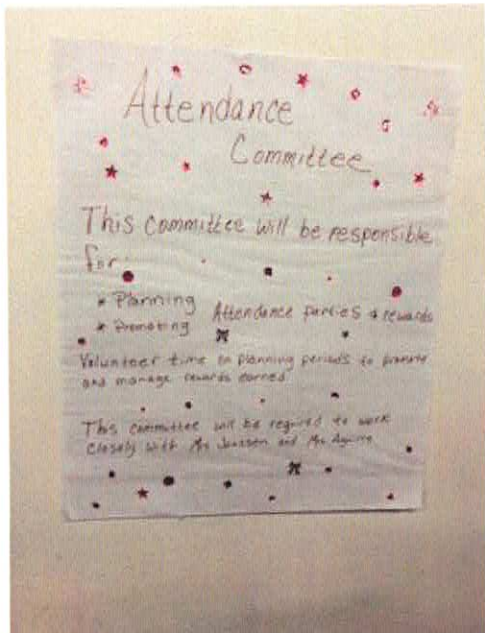 Attendance
Committee
This committee will be responsible
for:
* Planning
* Promoting
Attendance parties & rewards
Volunteer time on planning periods to promote
and manage rewards earned
This committee will be required to work
closely with and